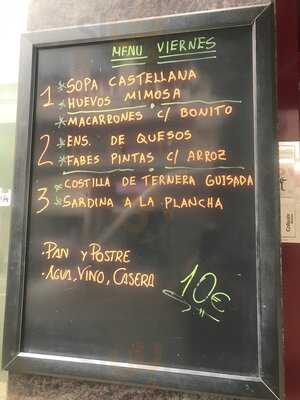 MENU VIERNES
1 * SOPA CASTELLANA
* HUEVOS MIMOSA
* MACARRONES C/ BONITO
2 * ENS. DE QUESOS
* FABES PINTAS C/ ARROZ
* COSTILLA DE TERNERA GUISADA
3 * SARDINA A LA PLANCHA
· PAN Y POSTRE
· AGUA, VINO, CASERA
10€